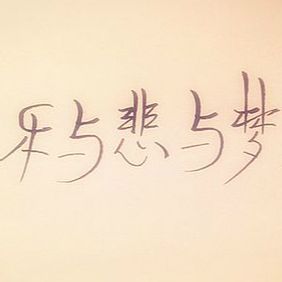 乐与悲与梦